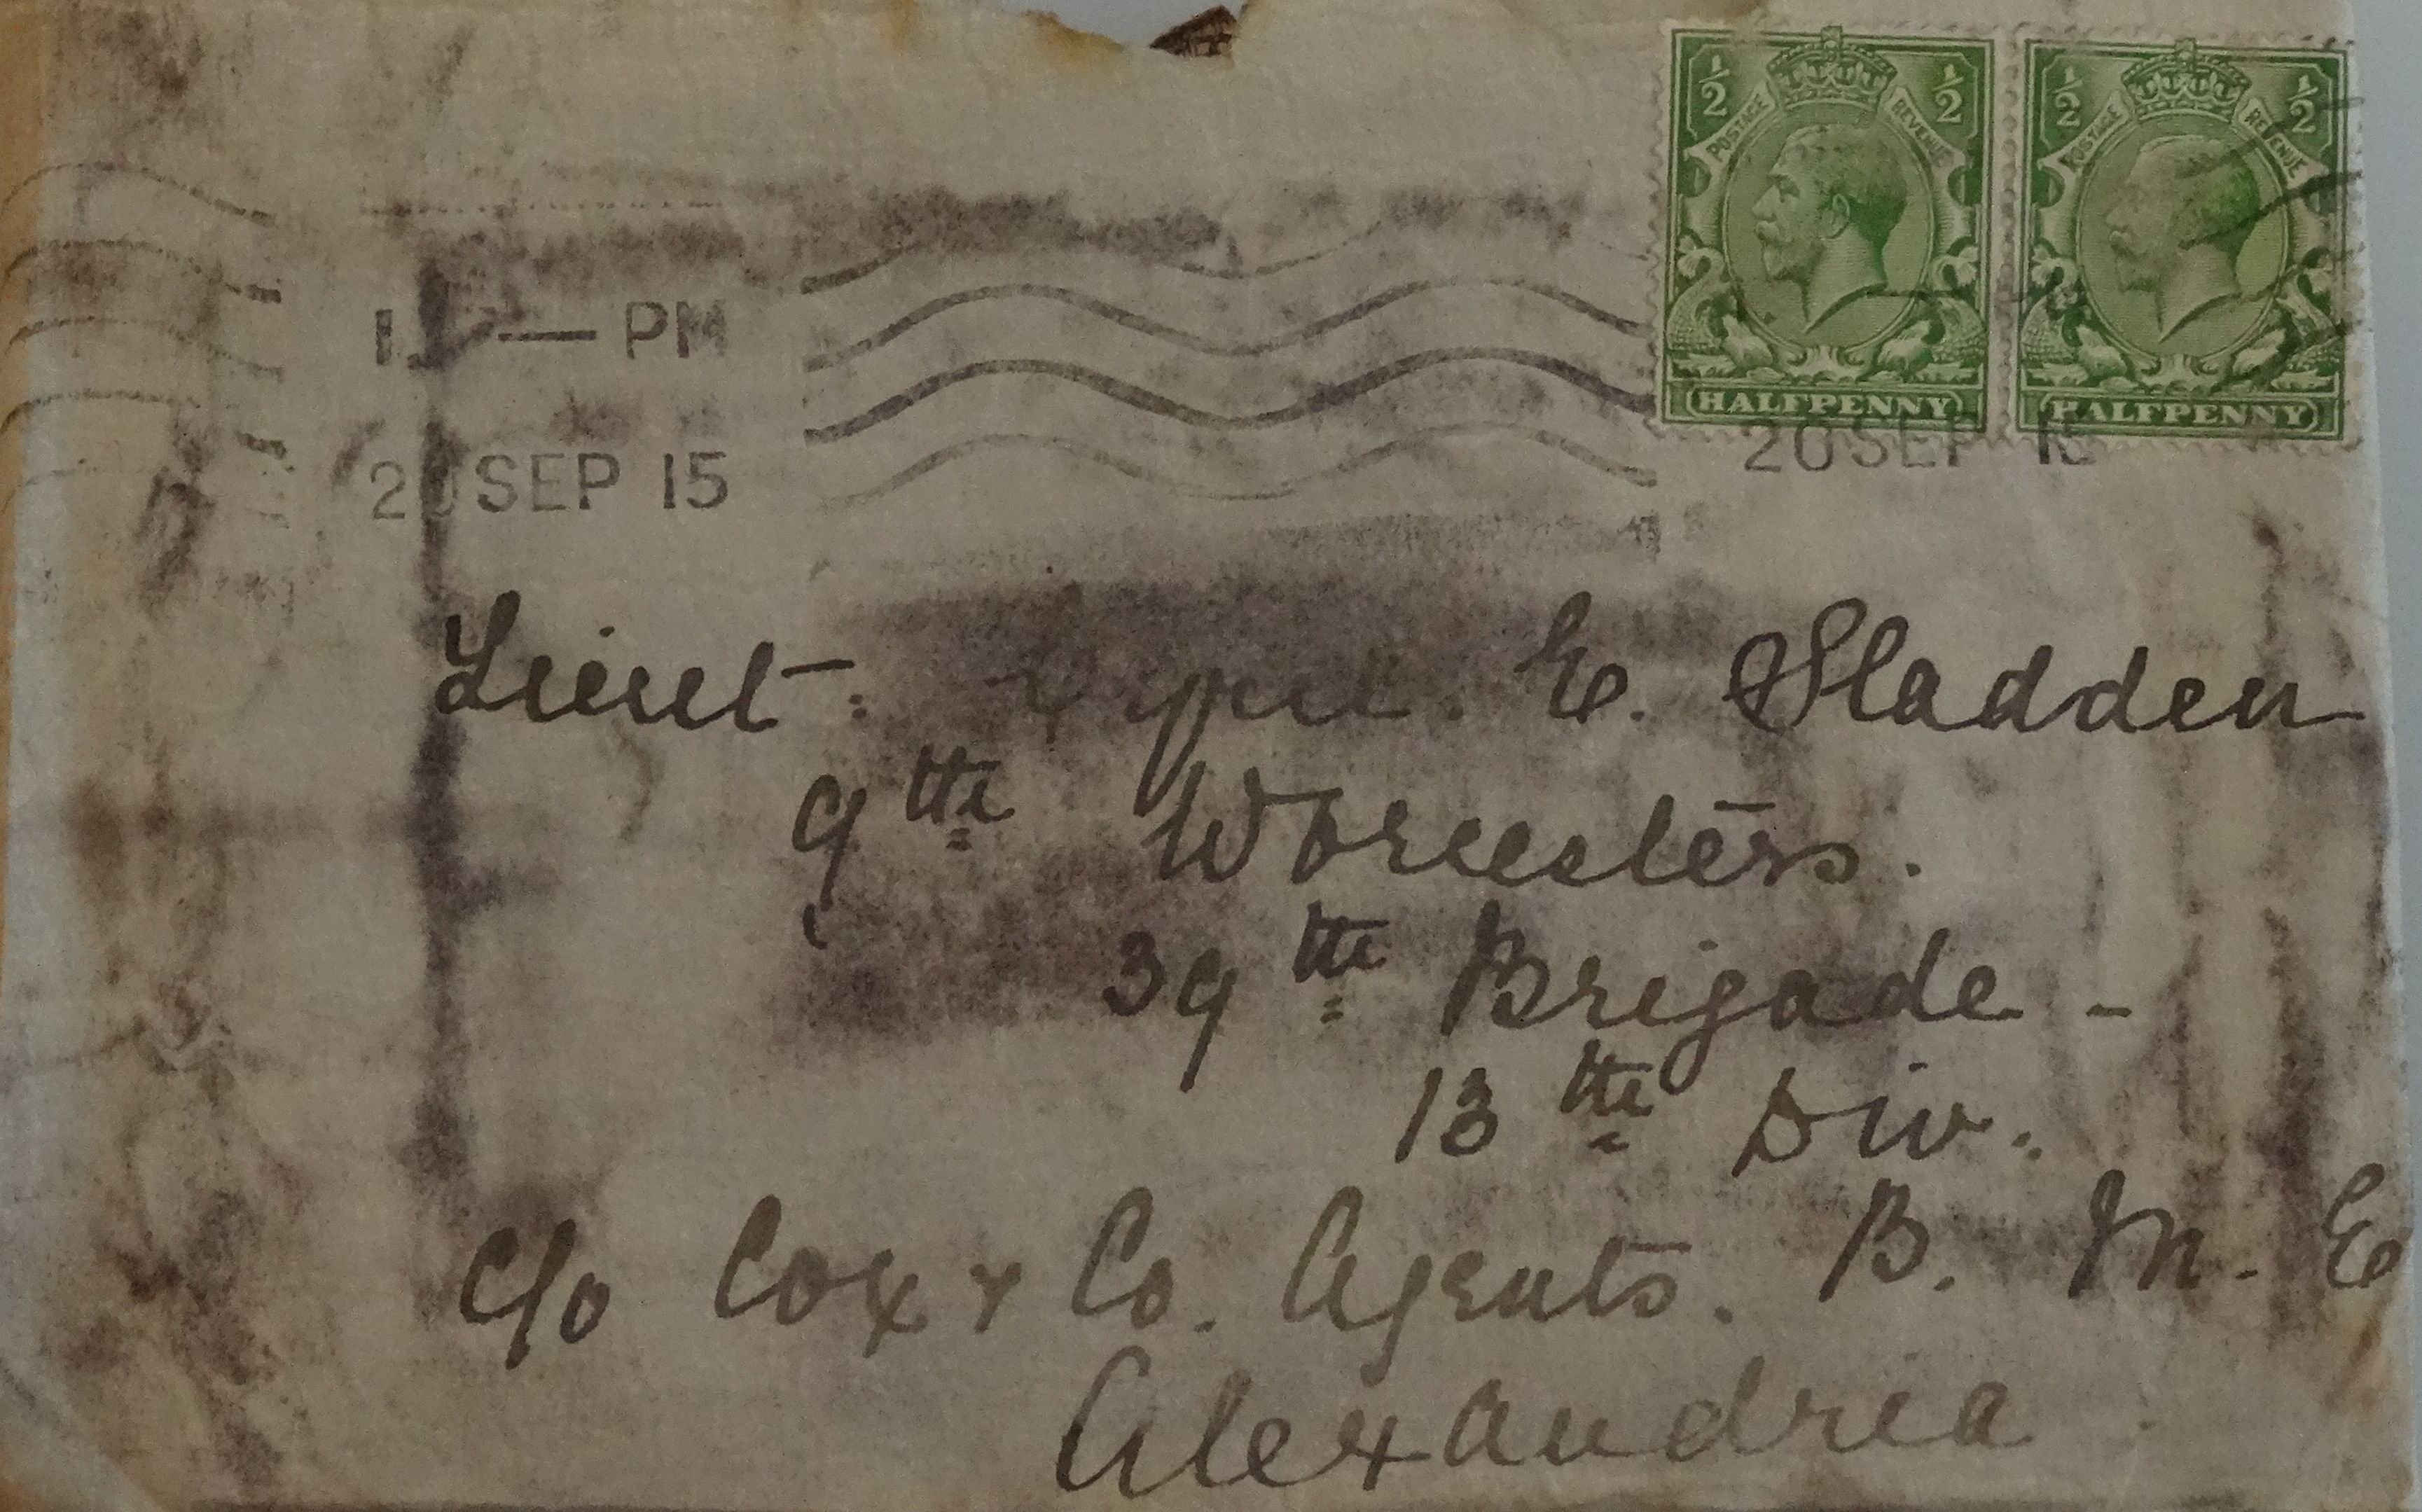 ½ POSTAGE REVENUE ½ ½ POSTAGE REVENUE ½
PM
HALFPENNY HALFPENNY
20 SEP 15 20 SEP 15
Lieut. E. Sladden
9th Worcesters.
39th Brigade -
13th Div.
C/o Cox & Co. Agents. B. M. E
Alexandria